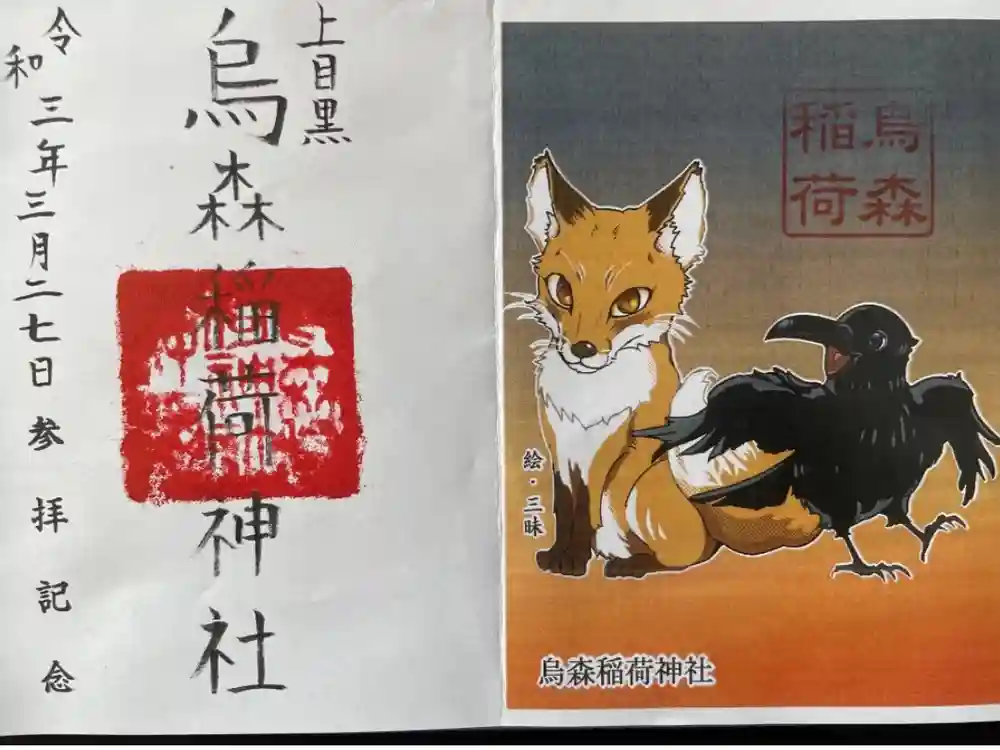 上目黒
烏森稲荷神社
令和三年三月二七日参拝記念
烏森
稲荷
絵・三昧
烏森稲荷神社